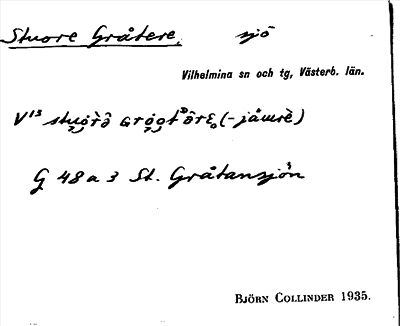 Stuore Gråtere. sjö
Vilhelmina sn och tg, Västerb. län.
V¹³ (-jåurè)
G 48 a 3 St. Gråtansjön
BJÖRN COLLINDER 1935.